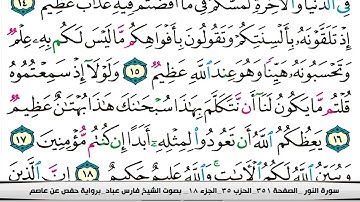 فِي ٱلدُّنۡيَا وَٱلۡأٓخِرَةِ لَمَسَّكُمۡ فِي مَآ أَفَضۡتُمۡ فِيهِ عَذَابٌ عَظِيمٌ ١٤
إِذۡ تَلَقَّوۡنَهُۥ بِأَلۡسِنَتِكُمۡ وَتَقُولُونَ بِأَفۡوَاهِكُم مَّا لَيۡسَ لَكُم بِهِۦ عِلۡمٞ
وَتَحۡسَبُونَهُۥ هَيِّنٗا وَهُوَ عِندَ ٱللَّهِ عَظِيمٞ ١٥ وَلَوۡلَآ إِذۡ سَمِعۡتُمُوهُ
قُلۡتُم مَّا يَكُونُ لَنَآ أَن نَّتَكَلَّمَ بِهَٰذَا سُبۡحَٰنَكَ هَٰذَا بُهۡتَٰنٌ عَظِيمٞ
١٦ يَعِظُكُمُ ٱللَّهُ أَن تَعُودُواْ لِمِثۡلِهِۦٓ أَبَدًا إِن كُنتُم مُّؤۡمِنِينَ ١٧
وَيُبَيِّنُ ٱللَّهُ لَكُمُ ٱلۡأٓيَٰتِۚ وَٱللَّهُ عَلِيمٌ حَكِيمٌ ١٨ إِنَّ ٱلَّذِينَ
سورة النور_ الصفحة ٣٥١_ الحزب ٣٥_ الجزء ١٨_ بصوت الشيخ فارس عباد_برواية حفص عن عاصم